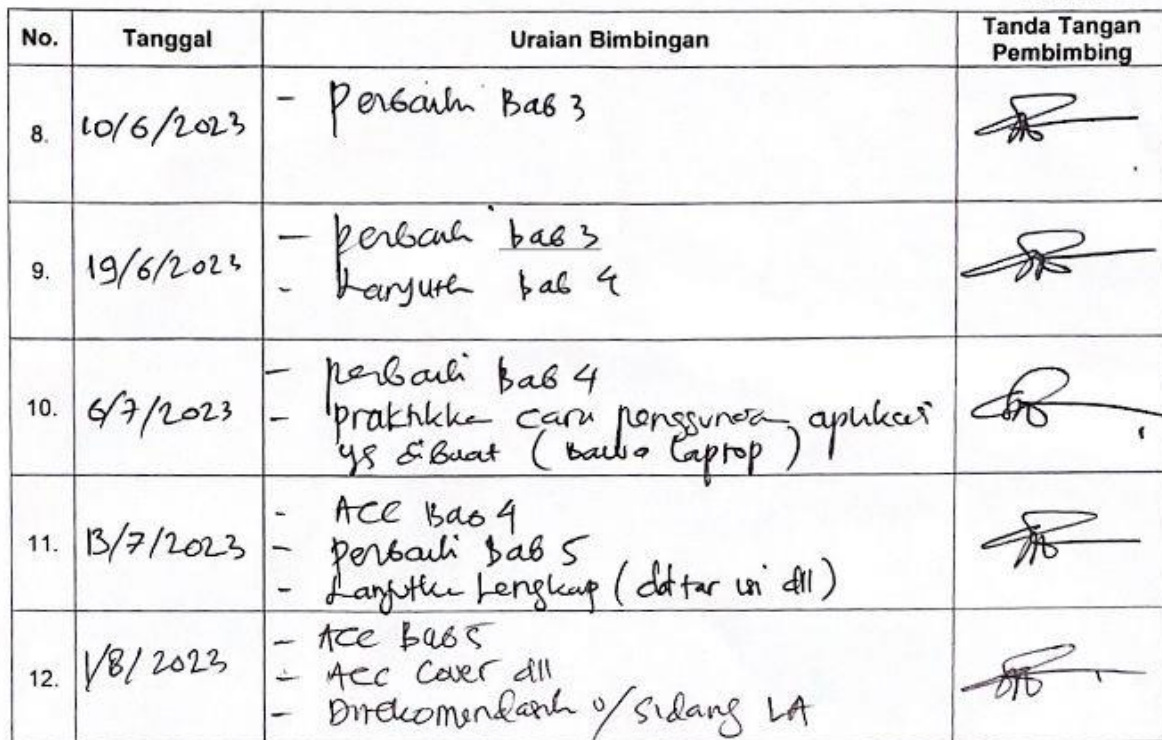 No. Tanggal Uraian Bimbingan Tanda Tangan
Pembimbing
8. 10/6/2023 - Perbaiki Bab 3
9. 19/6/2023 - perbaiki bab 3
- Lanjutk bab 4
10. 6/7/2023 - perbaiki Bab 4
- praktikka cara penggunaa aplikasi
yg dibuat ( bawa laptop )
11. 13/7/2023 - ACC Bab 4
- perbaiki Bab 5
- Lanjutka Lengkap ( daftar isi dll )
12. 1/8/2023 - ACC Bab 5
- Acc Cover dll
- Direkomendasik u/ Sidang LA